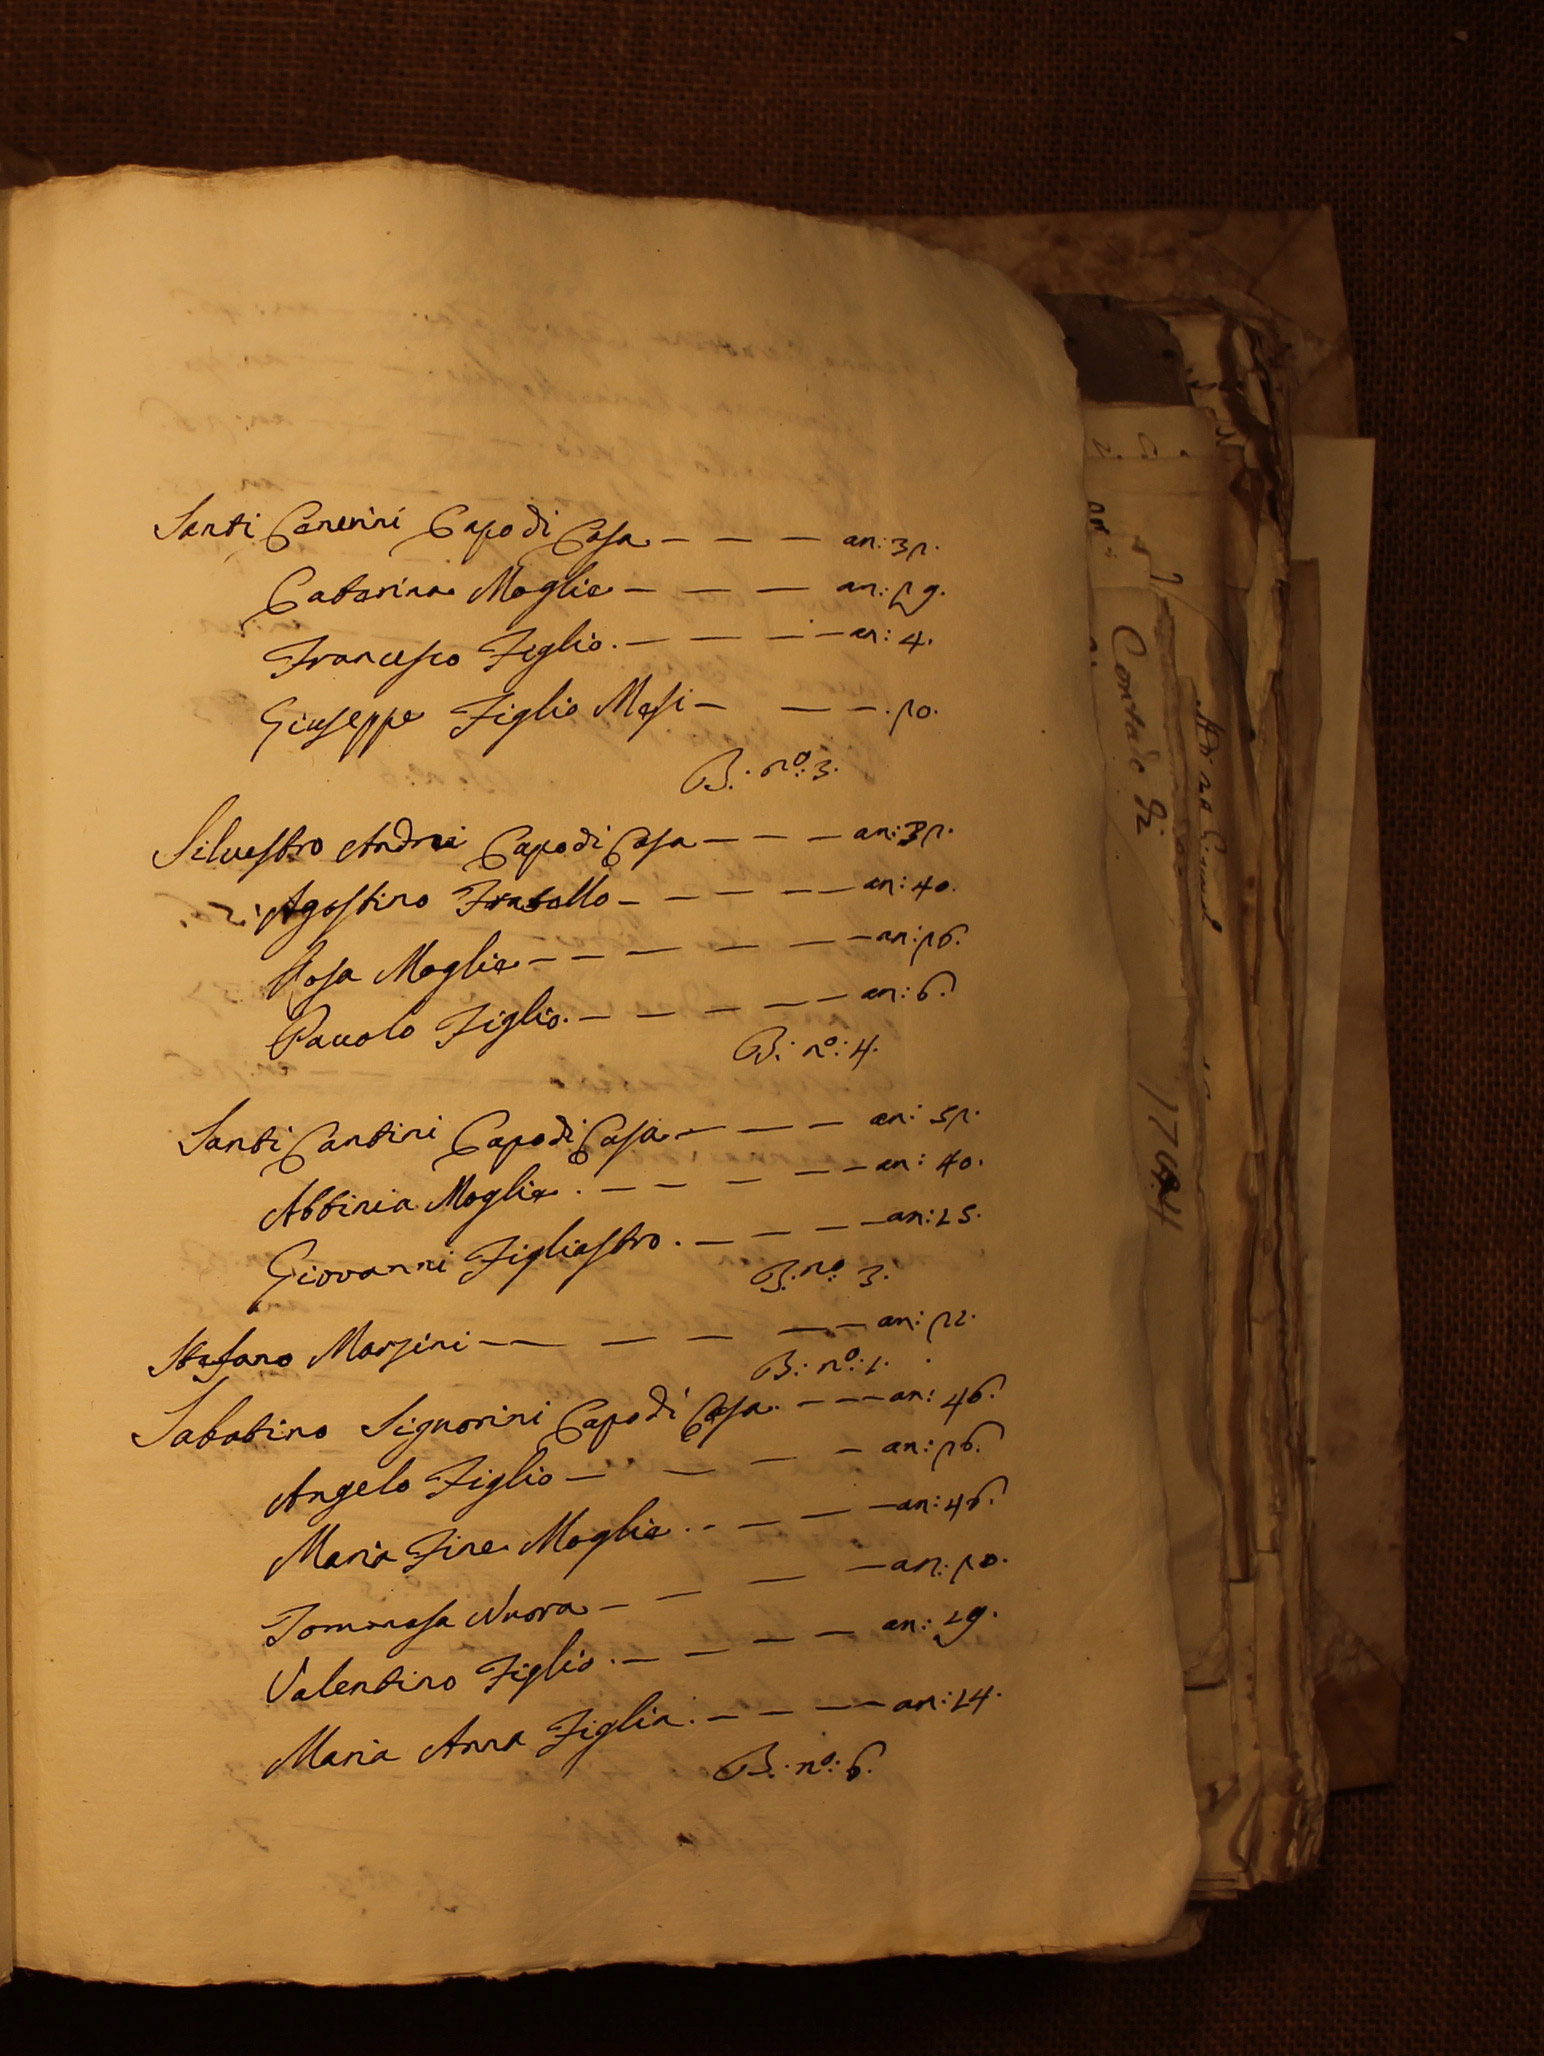 Santi Canerini Capo di Casa — — — an: 32.
Catarina Moglie — — — an: 29.
Francesco Figlio. — — — an: 4.
Giuseppe Figlio Mesi — — — 20.
B. nº: 3.
Silvestro Andrei Capo di Casa — — — an: 32.
Agostino Fratello — — — — an: 40.
Rosa Moglie — — — — — an: 26.
Pauolo Figlio. — — — — — an: 6.
B: nº: 4.
Santi Cantini Capo di Casa — — — an: 52.
Abbinia Moglie. — — — — — an: 40.
Giovanni Figliastro. — — — — an: 15.
B: nº 3.
Stefano Marzini — — — — — an: 21.
B: nº: 1.
Sabatino Signorini Capo di Casa. — — — an: 46.
Angelo Figlio — — — — an: 26.
Maria Fine Moglie. — — — — an: 46.
Tommasa Nuora — — — — an: 20.
Valentino Figlio. — — — — an: 19.
Maria Anna Figlia. — — — — an: 14.
B. nº: 6.
Contado di